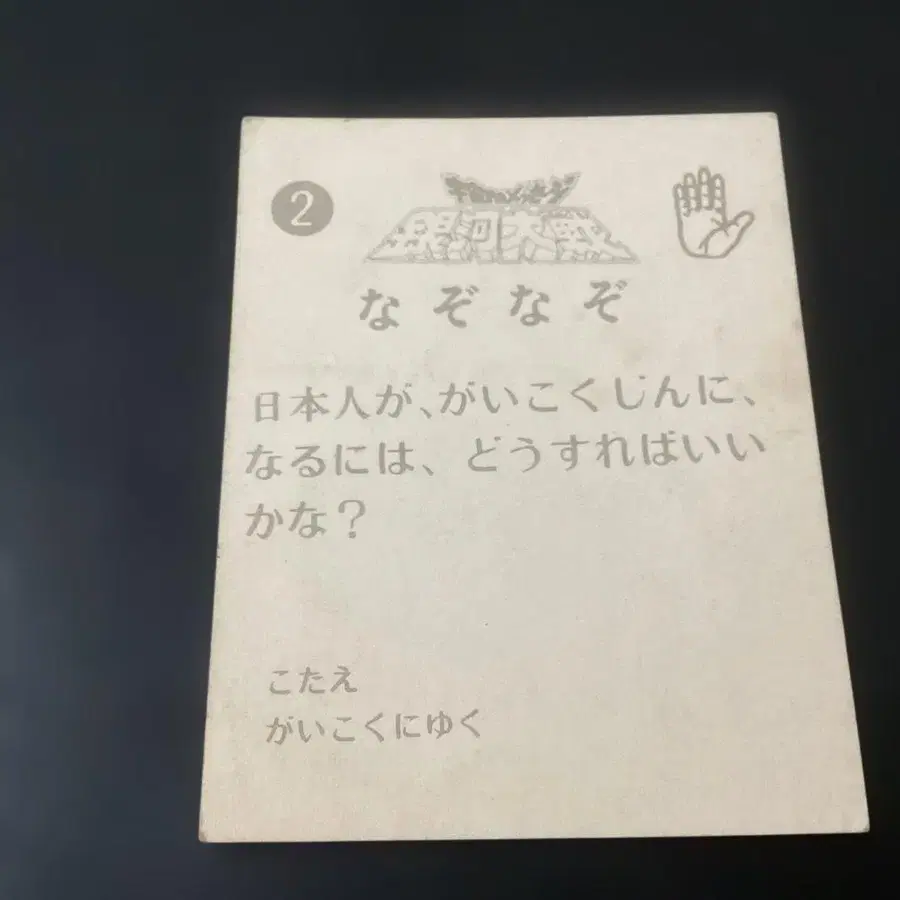 2
宇宙からのメッセージ
銀河大戦
なぞなぞ
日本人が、がいこくじんに、
なるには、どうすればいい
かな?
こたえ
がいこくにゆく